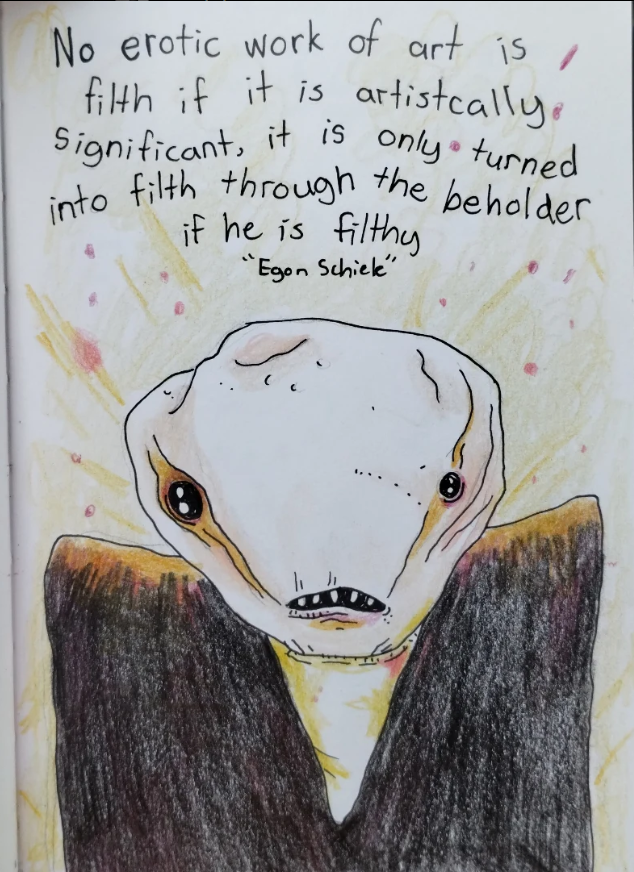 No erotic work of art is
filth if it is artistcally
significant, it is only turned
into filth through the beholder
if he is filthy
"Egon Schiele"